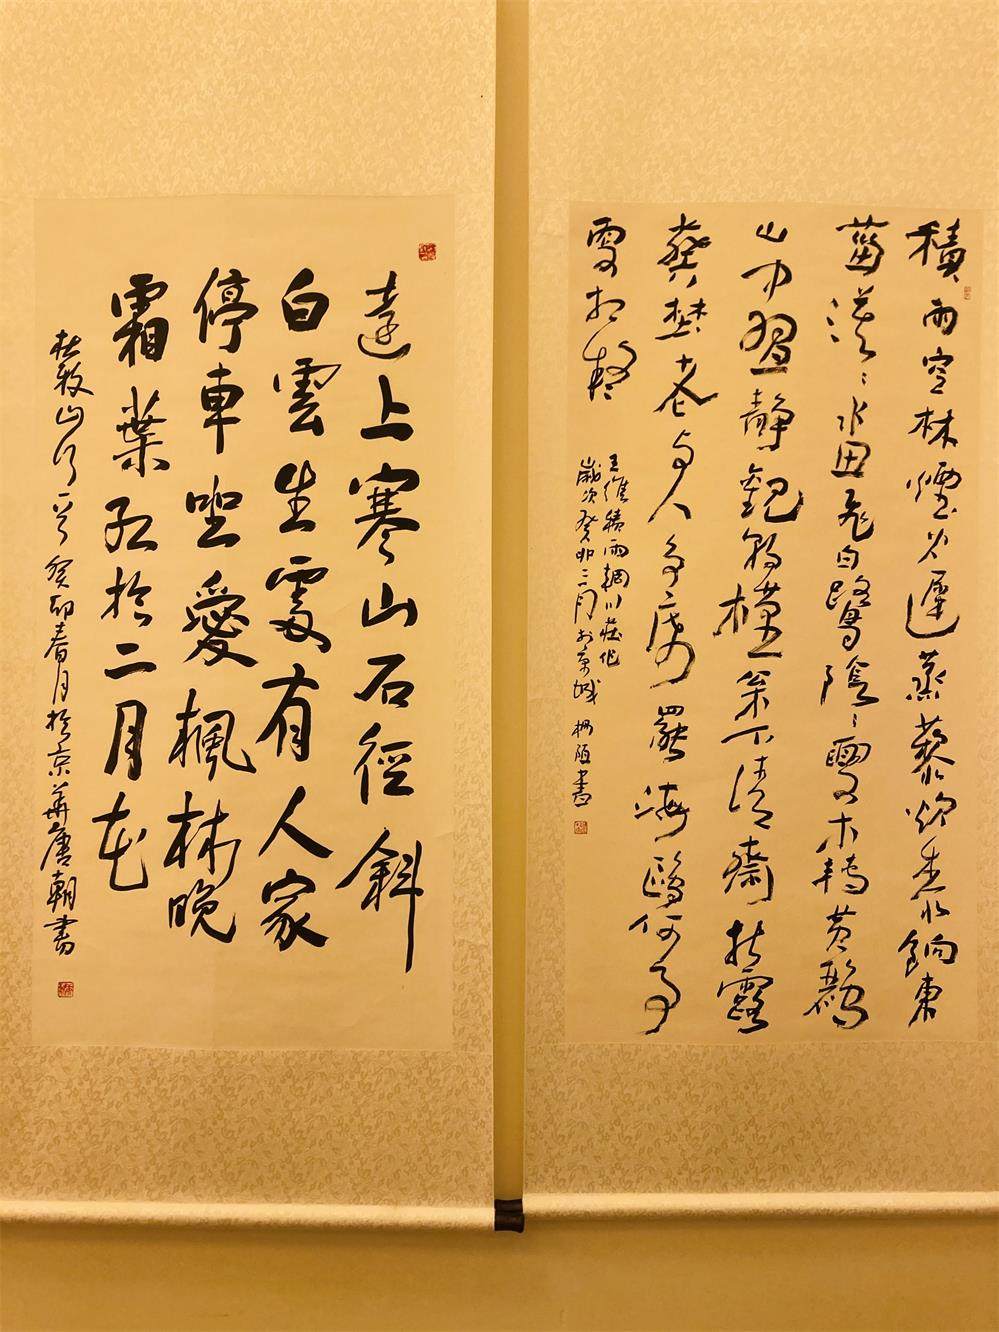 積雨空林煙火遲蒸藜炊黍餉東
菑漠〻水田飛白鷺陰〻夏木轉黃鸝
山中習靜觀朝槿松下清齋折露
葵埜老與人爭席罷海鷗何事
更相疑
王維積雨輞川莊作
歲次癸卯三月於京城 書
遠上寒山石徑斜
白雲生處有人家
停車坐愛楓林晚
霜葉紅於二月花
杜牧山行一首 癸卯春月於京華唐朝書